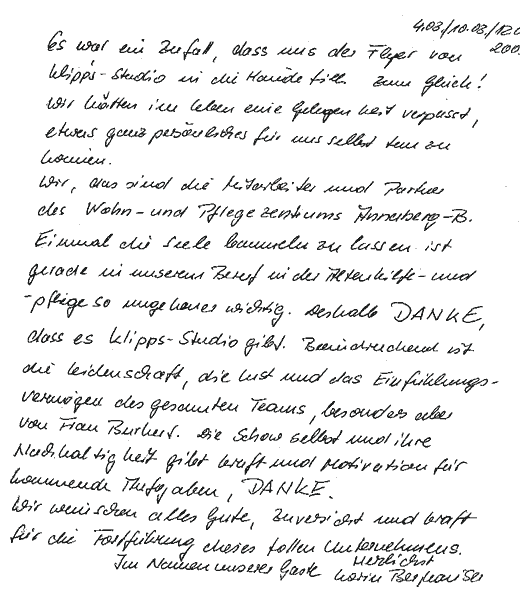 4.03/10.03/12.0
200
Es war ein Zufall, dass uns der Flyer von
Klipps-Studio in die Hände fiel. Zum Glück!
Wir hätten im Leben eine Gelegenheit verpasst,
etwas ganz persönliches für uns selbst tun zu
können.
Wir, das sind die Mitarbeiter und Partner
des Wohn- und Pflegezentrums Annaberg-B.
Einmal die Seele baumeln zu lassen ist
gerade in unserem Beruf in der Altenhilfe- und
-pflege so ungeheuer wichtig. Deshalb DANKE,
dass es Klipps-Studio gibt. Beeindruckend ist
die Leidenschaft, die Lust und das Einfühlungs-
vermögen des gesamten Teams, besonders aber
von Frau Burkert. Die Show selbst und ihre
Nachhaltigkeit gibt Kraft und Motivation für
kommende Aufgaben, DANKE.
Wir wünschen alles Gute, Zuversicht und Kraft
für die Fortführung dieses tollen Unternehmens.
Herzlichst
Im Namen unserer Gäste Karin